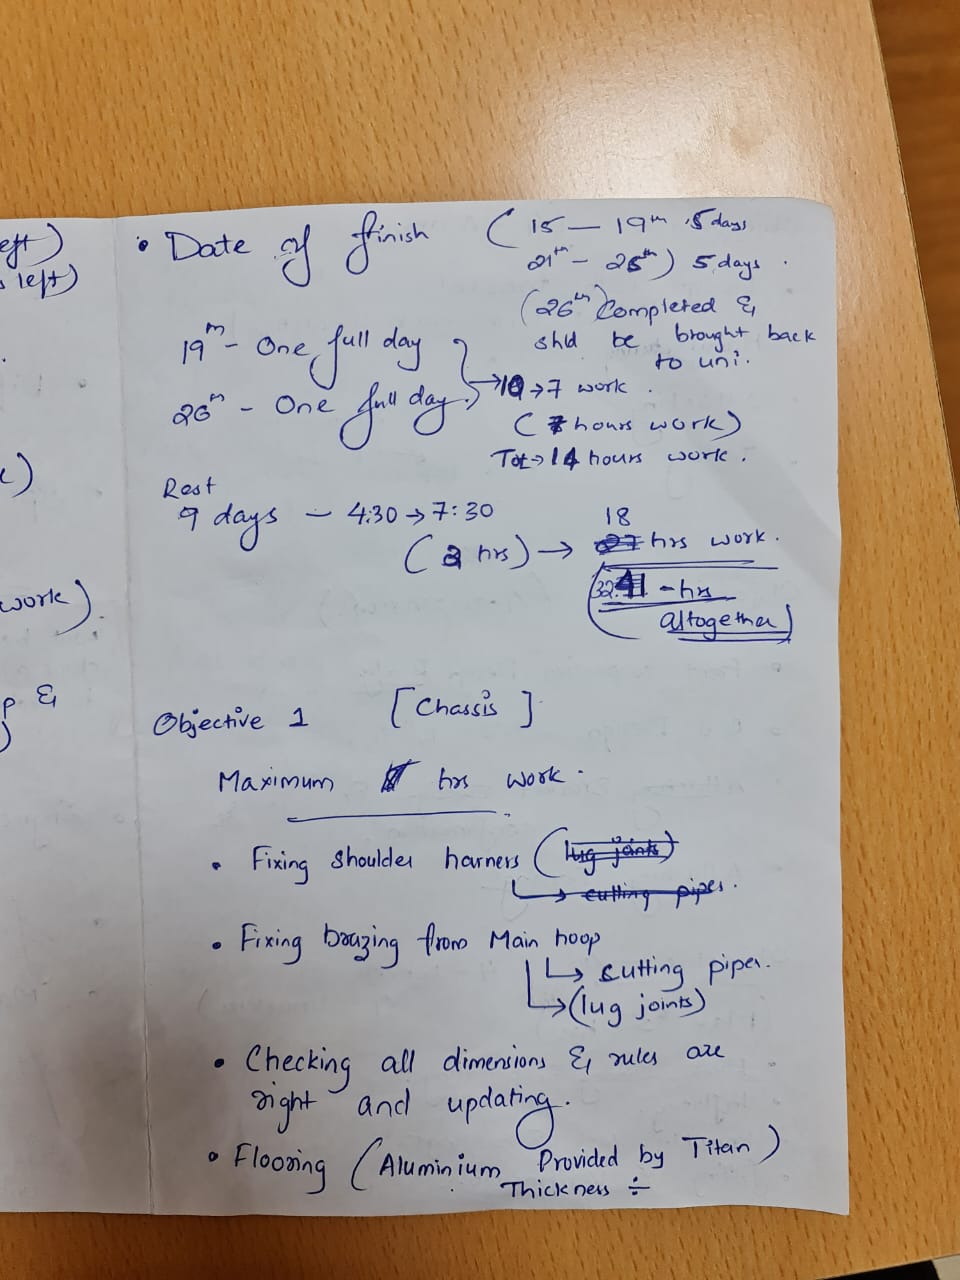 eft)
s left)
work)
p &
• Date of finish ( 15 — 19th 5 days
21th - 25th ) 5 days .
(26th) Completed &
shld be brought back
to uni.
19th - One full day
26th - One full day. → 10 → 7 work .
( 7 hours work )
Tot → 14 hours work .
Rest
9 days — 4:30 → 7:30
18
( 2 hrs ) → 27 hrs work .
32 41 - hrs
altogether )
Objective 1 [ Chassis ]
Maximum hrs work .
• Fixing shoulder harners ( lug joints )
↳ cutting pipes.
• Fixing brazing from Main hoop
↳ cutting pipes.
↳ (lug joints)
• Checking all dimensions & rules are
right and updating.
• Flooring ( Aluminium Provided by Titan )
Thickness ÷